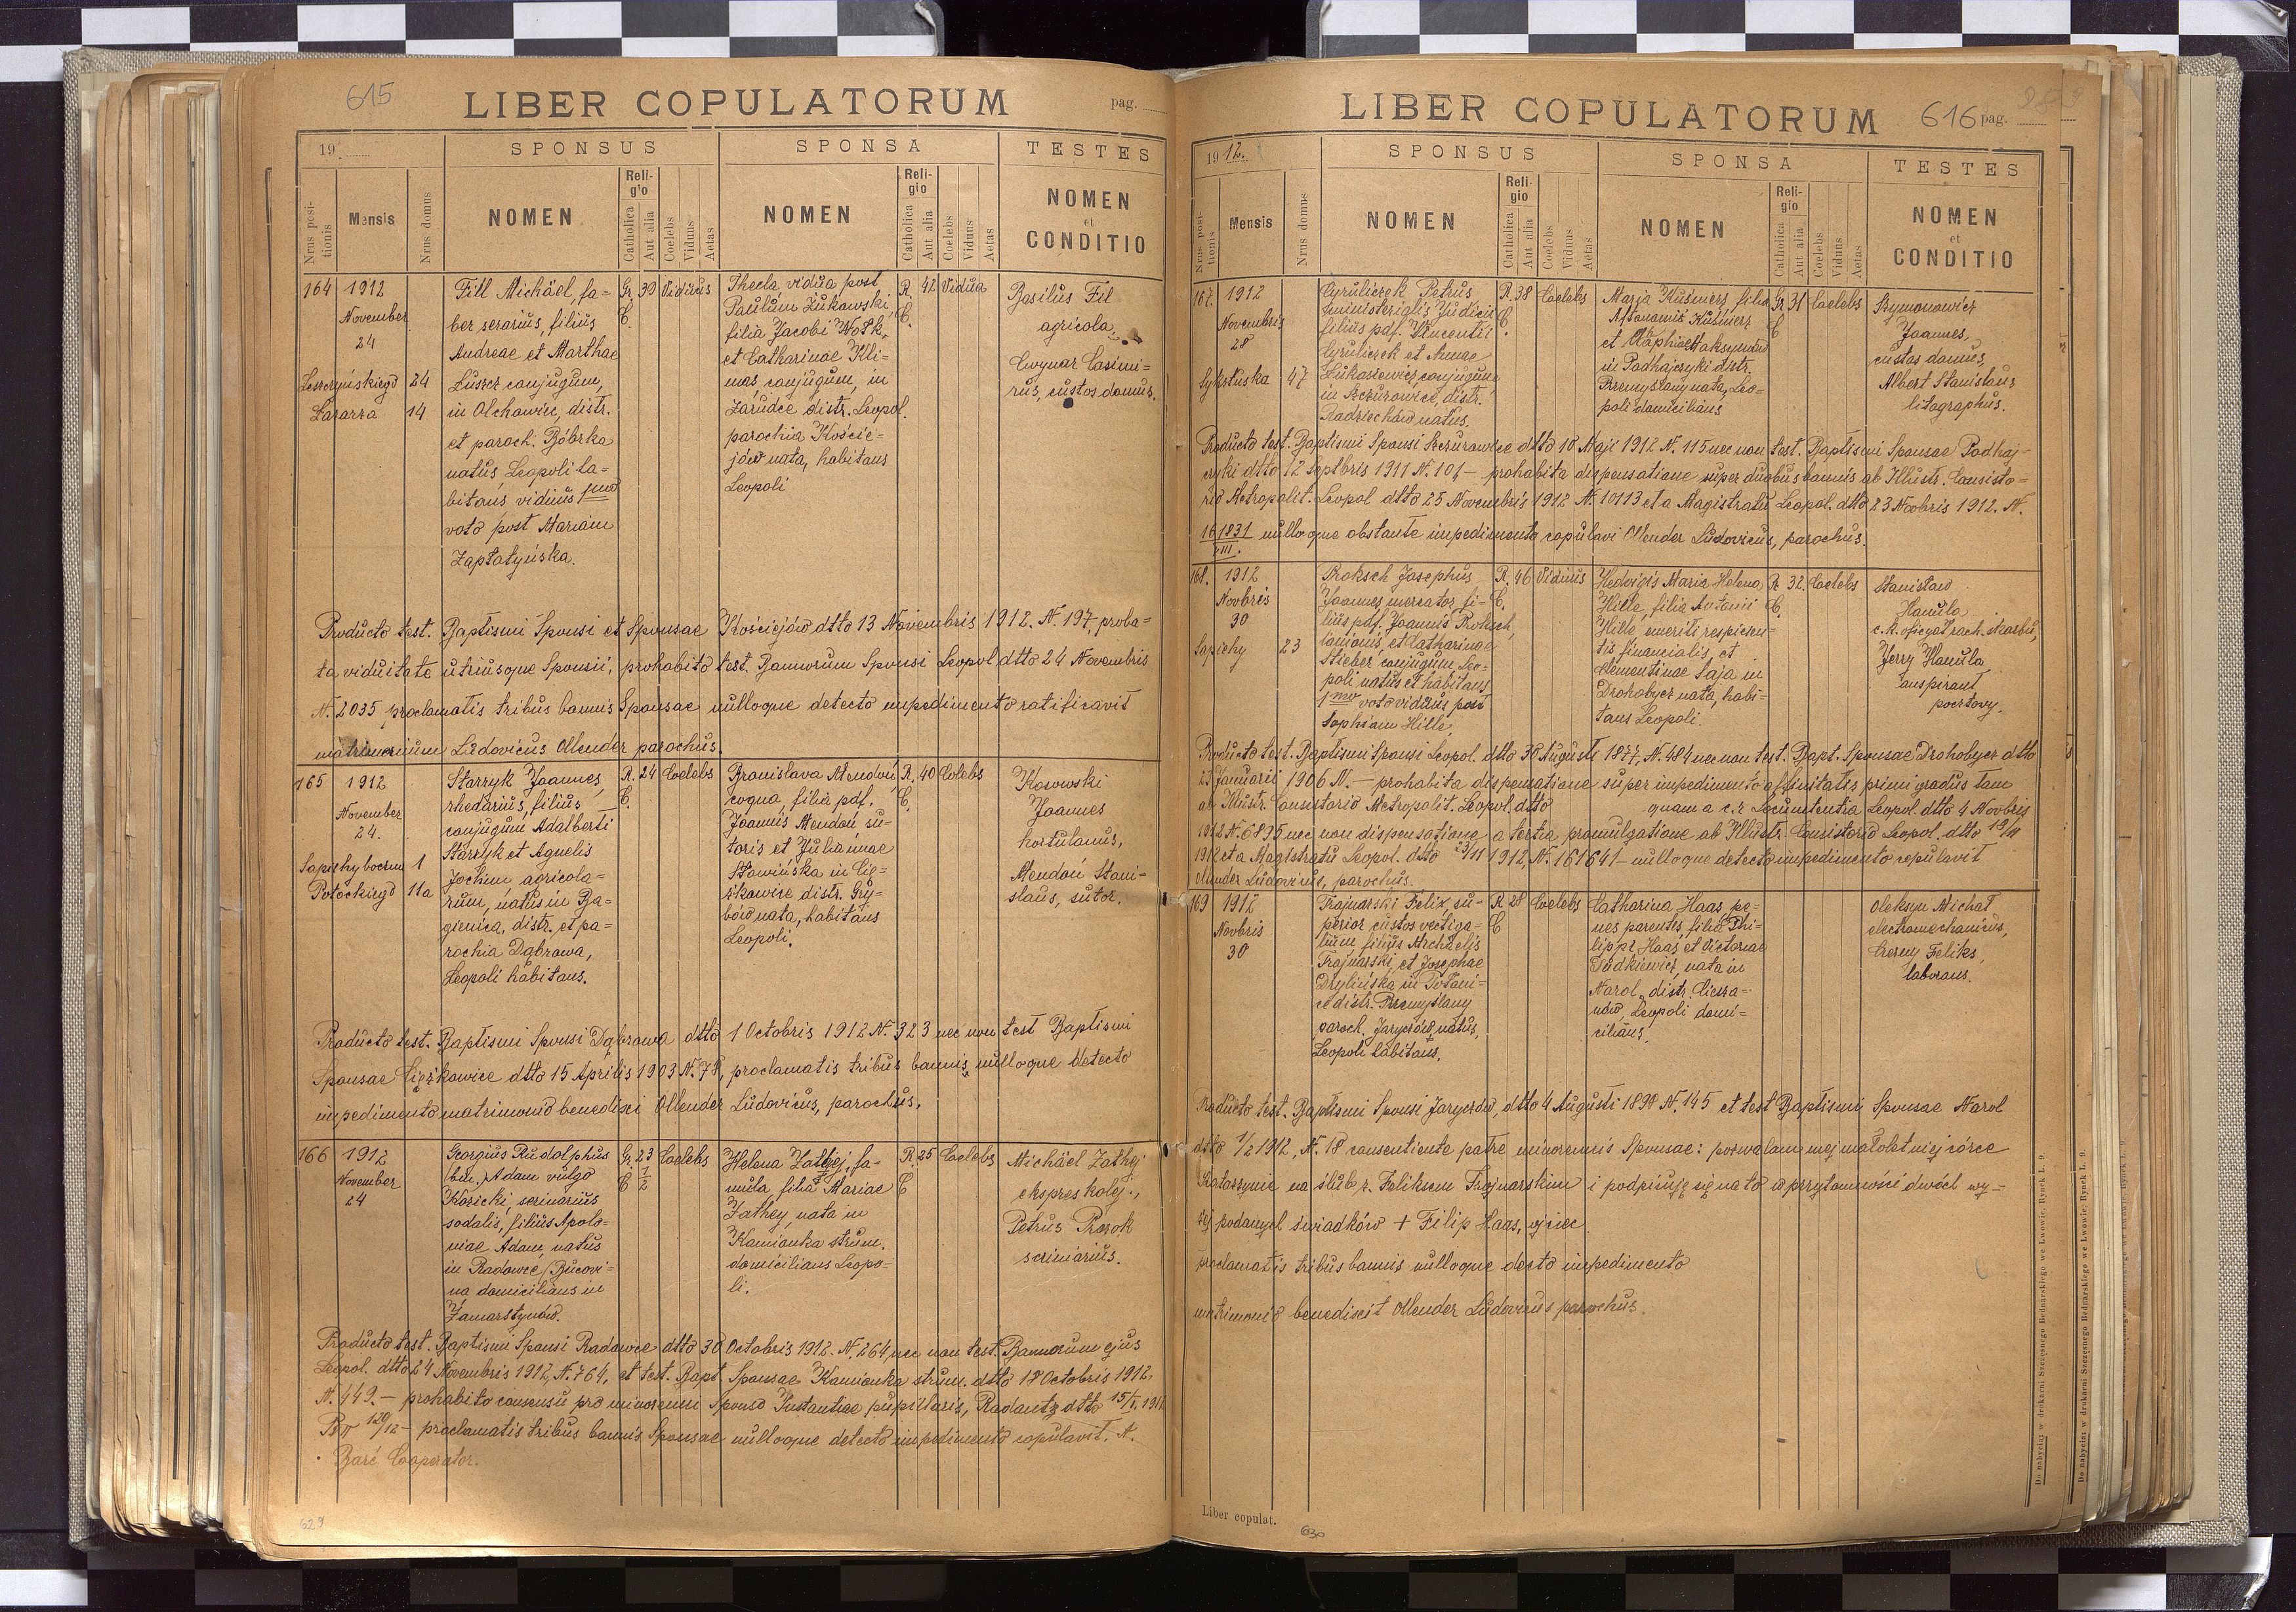 615
LIBER COPULATORUM
pag.
19
SPONSUS
SPONSA
TESTES
Nrus posi-
tionis
Mensis
Nrus domus
NOMEN
Reli-
gio
Catholica
Aut alia
Coelebs
Viduus
Aetas
NOMEN
Reli-
gio
Catholica
Aut alia
Coelebs
Viduus
Aetas
NOMEN
et
CONDITIO
164
1912
November
24
Leszczyńskiego 24
Łazarza 14
Fill Michäel, fa-
ber serarius, filius
Andreae et Marthae
Łuszcz conjugum,
in Olchowiec, distr.
et paroch. Bóbrka
natus, Leopoli ha-
bitans viduus 1mo
voto post Mariam
Zapłatyńska.
Gr. 39 Viduus
C.
Thecla vidua post
Paulum Żukowski,
filia Jacobi Wołk,
et Catharinae Kli-
mas, conjugum, in
Zarudce distr. Leopol.
parochia Koście-
jów nata, habitans
Leopoli
R. 42 Vidua
C.
Basilius Fil
agricola
Cwynar Casimi-
rus, custos domus.
Producto test. Baptismi Sponsi et Sponsae Kościejów dtto 13 Novembris 1912. N. 197, proba-
ta viduitate utriusque Sponsii, prohabito test. Bannorum Sponsi Leopol dtto 24 Novembris
N. 2035 proclamatis tribus bannis Sponsae nulloque detecto impedimento ratificavit
matrimonium Ludovicus Ollender parochus.
165
1912
November
24.
Sapiehy boczna 1
Potockiego 11a
Starzyk Joannes,
rhedarius, filius
conjugum Adalberti
Starzyk et Agnetis
Jochim agricola-
rum, natus in Ba-
gienica, distr. et pa-
rochia Dąbrowa,
Leopoli habitans.
R. 24 Coelebs
C.
Bronislava Mendoń,
coqua, filia pdf.
Joannis Mendoń su-
toris et Juliannae
Sławińska in Cię-
żkowice distr. Gry-
bów nata, habitans
Leopoli.
R. 40 Coelebs
C.
Kosowski
Joannes
hortulanus,
Mendoń Stani-
slaus, sutor.
Producto test. Baptismi Sponsi Dąbrowa dtto 1 Octobris 1912 N. 323 nec non test Baptismi
Sponsae Ciężkowice dtto 15 Aprilis 1903 N. 78, proclamatis tribus bannis, nulloque detecto
impedimento matrimonio benedixi Ollender Ludovicus, parochus.
166
1912
November
24
Georgius Rudolphus
(bin.) Adam vulgo
Kozicki, scrinarius
sodalis, filius Apolo-
niae Adam, natus
in Radowce (Bucovi-
na domicilians in
Zamarstynów.
Gr. 23 Coelebs
C 1/2
Helena Zathej, fa-
mula filia Mariae
Zathey, nata in
Kamionka strum.
domicilians Leopo-
li.
R. 25 Coelebs
C
Michäel Zathej
ekspres kolej.,
Petrus Prorok
scriniarius.
Producto test. Baptismi Sponsi Radowce dtto 30 Octobris 1912. N. 264 nec non test. Bannorum ejus
Leopol. dtto 24 Novembris 1912, N. 764, et test. Bapt. Sponsae Kamionka strum. dtto 18 Octobris 1912,
N. 449. - prohabito consensu pro minorenni Sponso Instantiae pupillaris, Radautz dtto 15/X. 1912
proclamatis tribus bannis Sponsae nulloque detecto impedimento copulavit. A.
Barć Cooperator.
629
LIBER COPULATORUM
616 pag.
1912.
SPONSUS
SPONSA
TESTES
Nrus posi-
tionis
Mensis
Nrus domus
NOMEN
Reli-
gio
Catholica
Aut alia
Coelebs
Viduus
Aetas
NOMEN
Reli-
gio
Catholica
Aut alia
Coelebs
Viduus
Aetas
NOMEN
et
CONDITIO
167.
1912
Novembris
28
Sykstuska 47
Cyruliczek Petrus
ministerialis Judicii
filius pdf. Vincentii
Cyruliczek et Annae
Łukasiewicz conjugum
in Szczurowice, distr.
Radziechów natus.
R. 38 Coelebs
C.
Maria Kuśnierz, filia
Kuśnierz
et
in Podhajczyki distr.
Przemyślany nata, Leo-
poli domicilians
Gr. 31 Coelebs
C
Szymonowicz
Joannes,
custos domus,
Albert Stanislaus
litographus.
Producto test. Baptismi Sponsi Szczurowice dtto 10 Maji 1912 N. 115 nec non test. Baptismi Sponsae Podhaj-
czyki dtto 12 Septbris 1911 N. 101 - prohabita dispensatione super duobus bannis ab Illustr. Consisto-
rio Metropolit. Leopol dtto 25 Novembris 1912 N. 10113 et a Magistratu Leopol. dtto 23 Novbris 1912. N.
161831/III. nulloque obstante impedimento copulavi Ollender Ludovicus, parochus.
168.
1912
Novbris
30
Sapiehy 23
Proksch Josephus
Joannes mercator, fi-
lius pdf. Joannis Proksch,
lanionis, et Catharinae
Stieber conjugum, Leo-
poli natus et habitans
1mo voto viduus post
Sophiam Hille,
R. 46 Viduus
C.
Hedvigis Maria Helena
Hille, filia Antonii
Hille, emeriti respicien-
tis financialis, et
Clementinae Saja in
Drohobycz nata, habi-
tans Leopoli.
R. 32. Coelebs
C.
Stanisław
Hanula
c. k. oficyał rach. skarbu,
Jerzy Hanula
aspirant
pocztowy.
Producto test. Baptismi Sponsi Leopol. dtto 30 Augusti 1877, N. 484 nec non test. Bapt. Sponsae Drohobycz dtto
23 januarii 1906 N. - prohabita dispensatione super impedimento affinitatis primi gradus tam
ab Illustr. Consistorio Metropolit. Leopol. dtto quam a c. r. Locumtentia Leopol. dtto 4 Novbris
1912 N. 6895 nec non dispensatione a tertia promulgatione ab Illustr. Consistorio Leopol. dtto
1912 et a Magistratu Leopol. dtto 23/11 1912, N. 161641 - nulloque detecto impedimento copulavit
Ollender Ludovicus, parochus.
169
1912
Novbris
30
Trajnarski Felix, su-
perior custos vectiga-
lium filius Michäelis
Trajnarski, et Josephae
Drylińska in
ce distr. Przemyślany
paroch. Jaryczów natus,
Leopoli habitans.
R 28 Coelebs
C
Catharina Haas, pe-
nes parentes, filia Phi-
lippi Haas, et Victoriae
Dudkiewicz, nata in
Narol, distr. Ciesza-
nów, Leopoli domi-
cilians.
Oleksyn Michał
electromechanicus,
Czerny Feliks,
laborans.
Producto test. Baptismi Sponsi Jaryczów, dtto 4 Augusti 1898 N. 145 et test Baptismi Sponsae Narol
dtto 1/2 1912, N. 18 consentiente patre minorennis Sponsae: pozwalam mej małoletniej córce
Katarzynie na ślub z Feliksem Trajnarskim i podpisuję się na to w przytomności dwóch wy-
żej podanych świadków + Filip Haas, ojciec
proclamatis tribus bannis nulloque decto impedimento
matrimonio benedixit Ollender Ludovicus parochus.
Liber copulat.
630
Do nabycia: w drukarni Szczęsnego Bednarskiego we Lwowie, Rynek L. 9.
Do nabycia: w drukarni Szczęsnego Bednarskiego we Lwowie, Rynek L. 9.